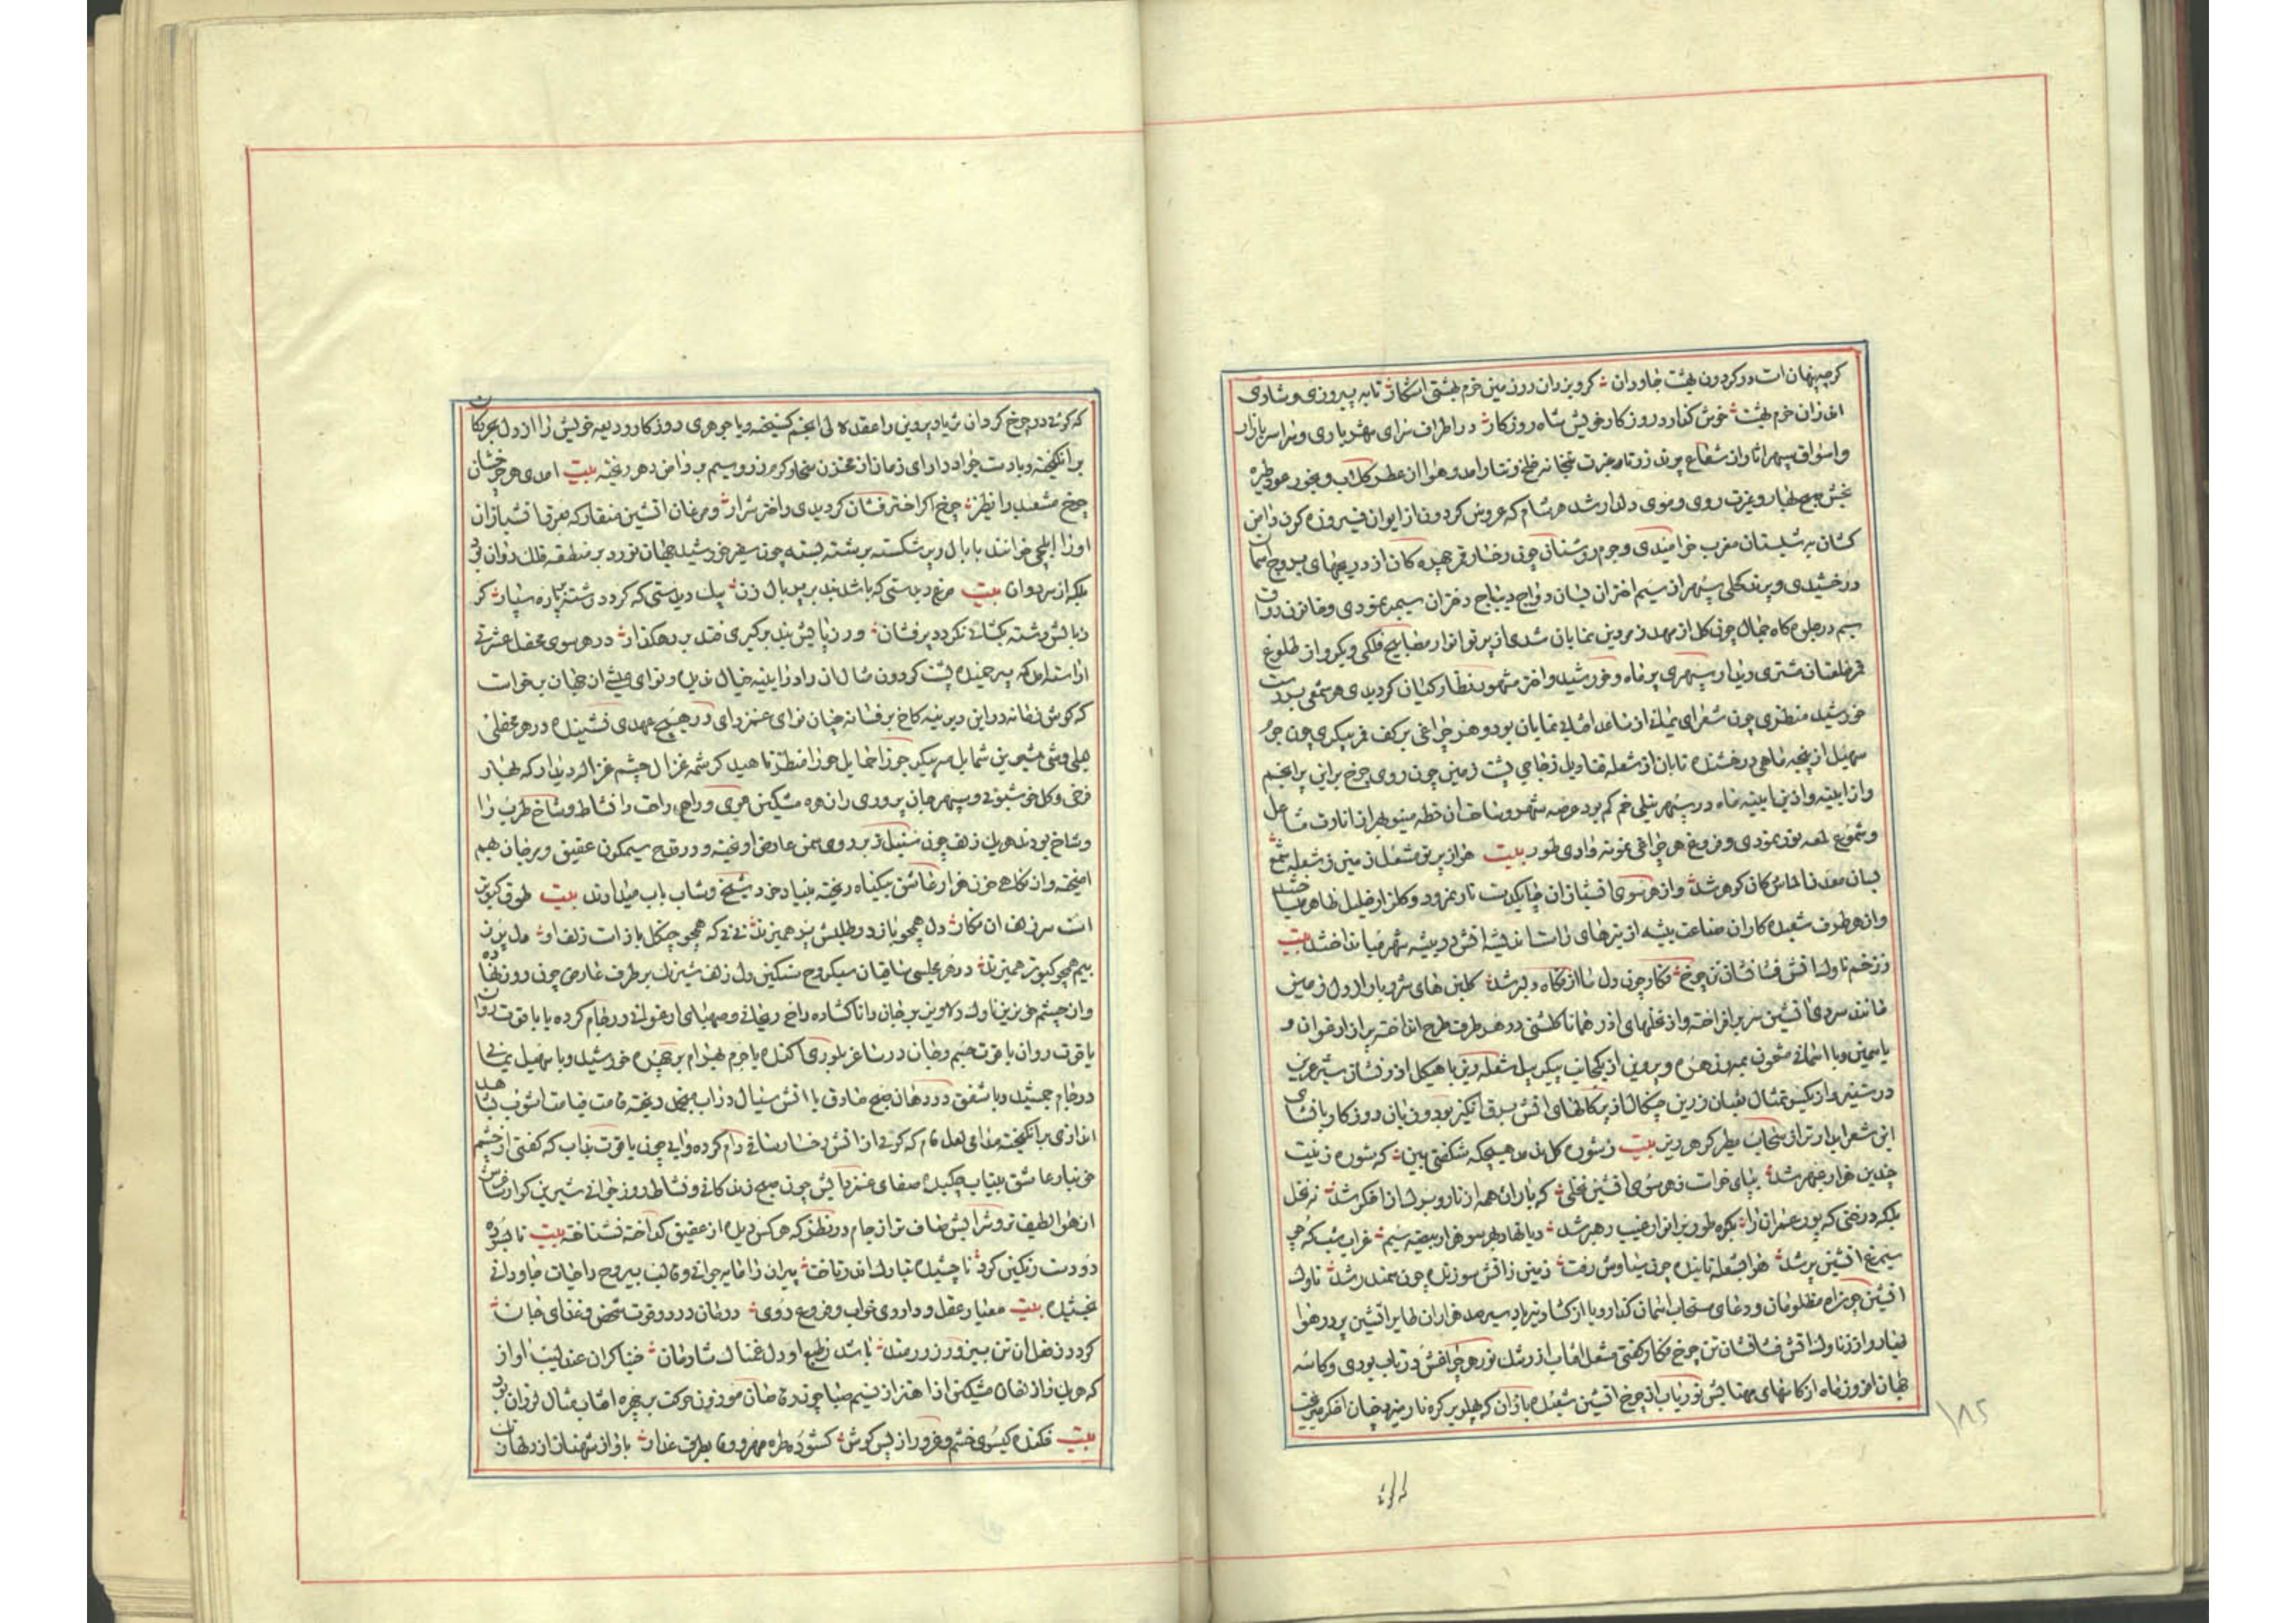 کرچه پنهان است در کردون بهشت جاودان کرد یزدان در زمین خرم بهشتی اشکار تا به پیروزی و شادی
اندران خرم بهشت خوش کذارد روزکار خویش شاه روزکار در اطراف سرای شهریاری و سراسر بازار
و اسواق سپهر اثار از شعاع پرند زرتار غیرت خانه خلخ و تتار امد و هوا از عطر کلاب و بخور عود طیره
بخش صبح بهار و غیرت روی و موی دلدار شد هر شام که عروس کردون از ایوان فیروزه کون دامن
کشان به شبستان مغرب خرامیدی و جرم روشنان چون رخسار قمر چهره کان از دریچهای بروج اسمان
درخشیدی و پرند کحلی سپهر از سیم اختران بسان دواج دیباج دختران سیمبر نمودی و خاتون رواق
سیم در جلوه کاه جمال چون کل از مهد زمردین نمایان شدی از پرتو انوار مصابیح فلکی و یکرو از طلوع
قمر طلعتان مشتری دیدار سپهری پر ماه و خورشید و اختر مشهود نظارکیان کردیدی هر شمعی بدست
خورشید منظری چون شعرای یمانی از ساعد نمایان بود و هر چراغی بر کف قمر پیکری چون جرم
سهیل از پنجه ماهی درخشنده تابان از شعله قنادیل زجاجی پشت زمین چون روی چرخ برین پر انجم
و از اینه و اذین اینه ماه در سپهر نیلی خم کم بود عرصه شهر و ساحت ان خطه مینو بهر از انارت مشاعل
و شموع لمعه نور نمودی و فروغ هر چراغی نمونه وادی طور بیت هوا از پرتو مشعل زمین ز شعله شمع
بسان معدن الماس کان کوهر شد و از هر سوی اتشبازان چابکدست نار نمرود و کلزار خلیل ظاهر ساختند
و از هر طرف شعبده کاران صناعت پیشه از تیرهای راست اندیشه اتش در بیشه سپهر مینا انداختند بیت
ز زخم ناوک اتش فشان تن چرخ فکار چون دل ما از نکاه دلبر شد کلبن های شرر بار از دل زمین
مانند سروی اتشین سر بر افراخته و از نخلهای اذر همانا کلشنی در هر طرف طرح انداخته پر از ارغوان و
یاسمین و یا اسمانی مشحون بمهر و زهره و پروین از یکجانب پیکر پیل شعله ریز با هیکل اذر فشان شیر عرین
در ستیز و از یکسو تمثال ثعبان زرین چنکال از پیکانهای اتش برق انکیز بود و زبان روزکار با نشای
این شعر ابدار تر از سحاب مطر کوهر ریز بیت ز شوره کل ندمد هیچکه شکفتی بین که شوره زینت
چندین هزار عبهر شد بپای خواست ز هر سوی اتشین نخلی که باران همه از نار و برک از اذکر شد نه نخل
بلکه درختی که پور عمران را بکوه طور بر انوار غیب رهبر شد دیا نهاد بهر سو هزار بیضه سیم غراب شب که چو
سیمرغ اتشین پر شد هوا بشعله تابنده چون سیاوش رفت زمین ز اتش سوزنده چون سمندر شد ناوک
اتشین چو اه مظلومان و دعای مستجاب اسمان کذار و یا از کشاد تیر با سیر صد هزاران طایر اتشین پر در هوا
طیار و از ناوک اتش فشان تن چرخ فکار کفتی مشعل افتاب از رشک نور هر چراغش در تاب بودی و کاسه
جهان افروز ماه از کاسهای مهتابش نور یاب از چرخ اتشین شعبده بازان که پهلو بر کره نار میزد چنان اخکر میریخت
۱۸۵
که کوئی
که کوئی در چرخ کردان بنیاد پروین را عقده لالی انجم کسیخته و یا جوهری روزکار ودیعه خویش را از دل بحر و کان
بر انکیخته و یا دست جواد دارای زمان از مخزن سخا و کرم زر و سیم بر دامن دهر ریخته بیت امدی هر چرخشان
چرخ مشعبد را نظیر چرخ اکر اختر فشان کردیدی و اختر شرار و مرغان اتشین منقار که معرقها اتشبازان
او را ایلچی خوانند با بال و پر شکسته بر رشته بسته چون سفر خورشید جهان نورد بر منطقه فلک روان بود
بلکه از سر دوان بیت مرغ دیدستی که باشد بند بر پر بال زن پیک دیدستی که کردد رشته پر پاره سپار کر
ز پایش رشته بکشائی نکردد پرفشان ور ز پایش بند برکیری فتد بر رهکذار در هر سوی محفل عشرتی
اراسته امد که پیر خمیده پشت کردون مثال ان را در اینه خیال ندیده و نوای عیشی از جهان برخواست
که کوش زمانه در این دیرینه کاخ پر فسانه چنان نوای غمزدای در هیچ عهدی نشنیده در هر محفلی
لیلی وشی شیرین شمایل مه پیکر جوزا حمایل جوزا منظر ناهید کرشمه غزال چشم غزاله دیدار که بهار
فرخی و کل خوشبوئی و سپهر جان پروری را زهره مشکین موی و راحی راحت را نشاط و شاخ طرب را
وشاخ بودند هر یک زلف چون سنبل تر بر روی سمن عارض اویخته و در قدح سیمکون عقیق و مرجان بهم
امیخته و از نکاهی خون هزار عاشق بیکناه ریخته بنیاد خرد شیخ و شاب باب میدادند بیت طوق کبوتر
است سر زلف ان نکار دل همچو باز در طلبش پر همیزند نی نی که همچو چنکل باز است زلف او دل پر ز
بیم همچو کبوتر همیزند در هر مجلسی ساقیان سبکروح سنکین دل زلف شبرنک بر طرف عارض چون روز نهاده
و از چشم خونریز ناوک دلاویز بر جان دلها کشاده راح ریحانی و صهبای ارغوانی در جام کرده یا یاقوت روان
یاقوت روان یا قوت جسم و جان در ساغر بلوری اکنده یا جرم بهرام بر چهره خورشید و یا سهیل یمانی
در جام جمشید و یا شفق در دهان صبح صادق یا اتش سیال در اب منجمد ریخته قامت قیامت اشوب شاهد
اندازی بر انکیخته مدامی لعل فام که کوئی از اتش رخسار ساقی وام کرده و ابی چون یاقوت مذاب که کفتی از چشم
خونبار عاشق بیتاب چکیده صفای غمزدایش چون صبح زندکانی و نشاط روز جوانی شیرین کوارنش
از هوا لطیف تر و شرابش صاف تر از جام در نظر که هر کس دیده از عقیق کداخته نشناخته بیت نا بسوده
دو دست رنکین کرد نا چشیده بتارک اندر تاخت پیران را مایه جوانی و قالب بیروح را حیات جاودانی
بخشیده بیت معیار عقل و داروی خواب و فروغ روی درمان درد و قوت شخص و غذای جان
کردد ز فعل ان تن بیزور زورمند باشد ز طبع او دل غمناک شادمان خنیاکران عندلیب اواز
که هر یک را زلفان مشکین از اهتزاز نسیم صبا چو زنده جان موزون حرکت بر چهره افتاب مثال لرزان بود
بیت فکنده کیسوی خشم و غرور از پس کوش کشوده طره مهر و وفا بطرف عذار با واز شهناز از دلهای